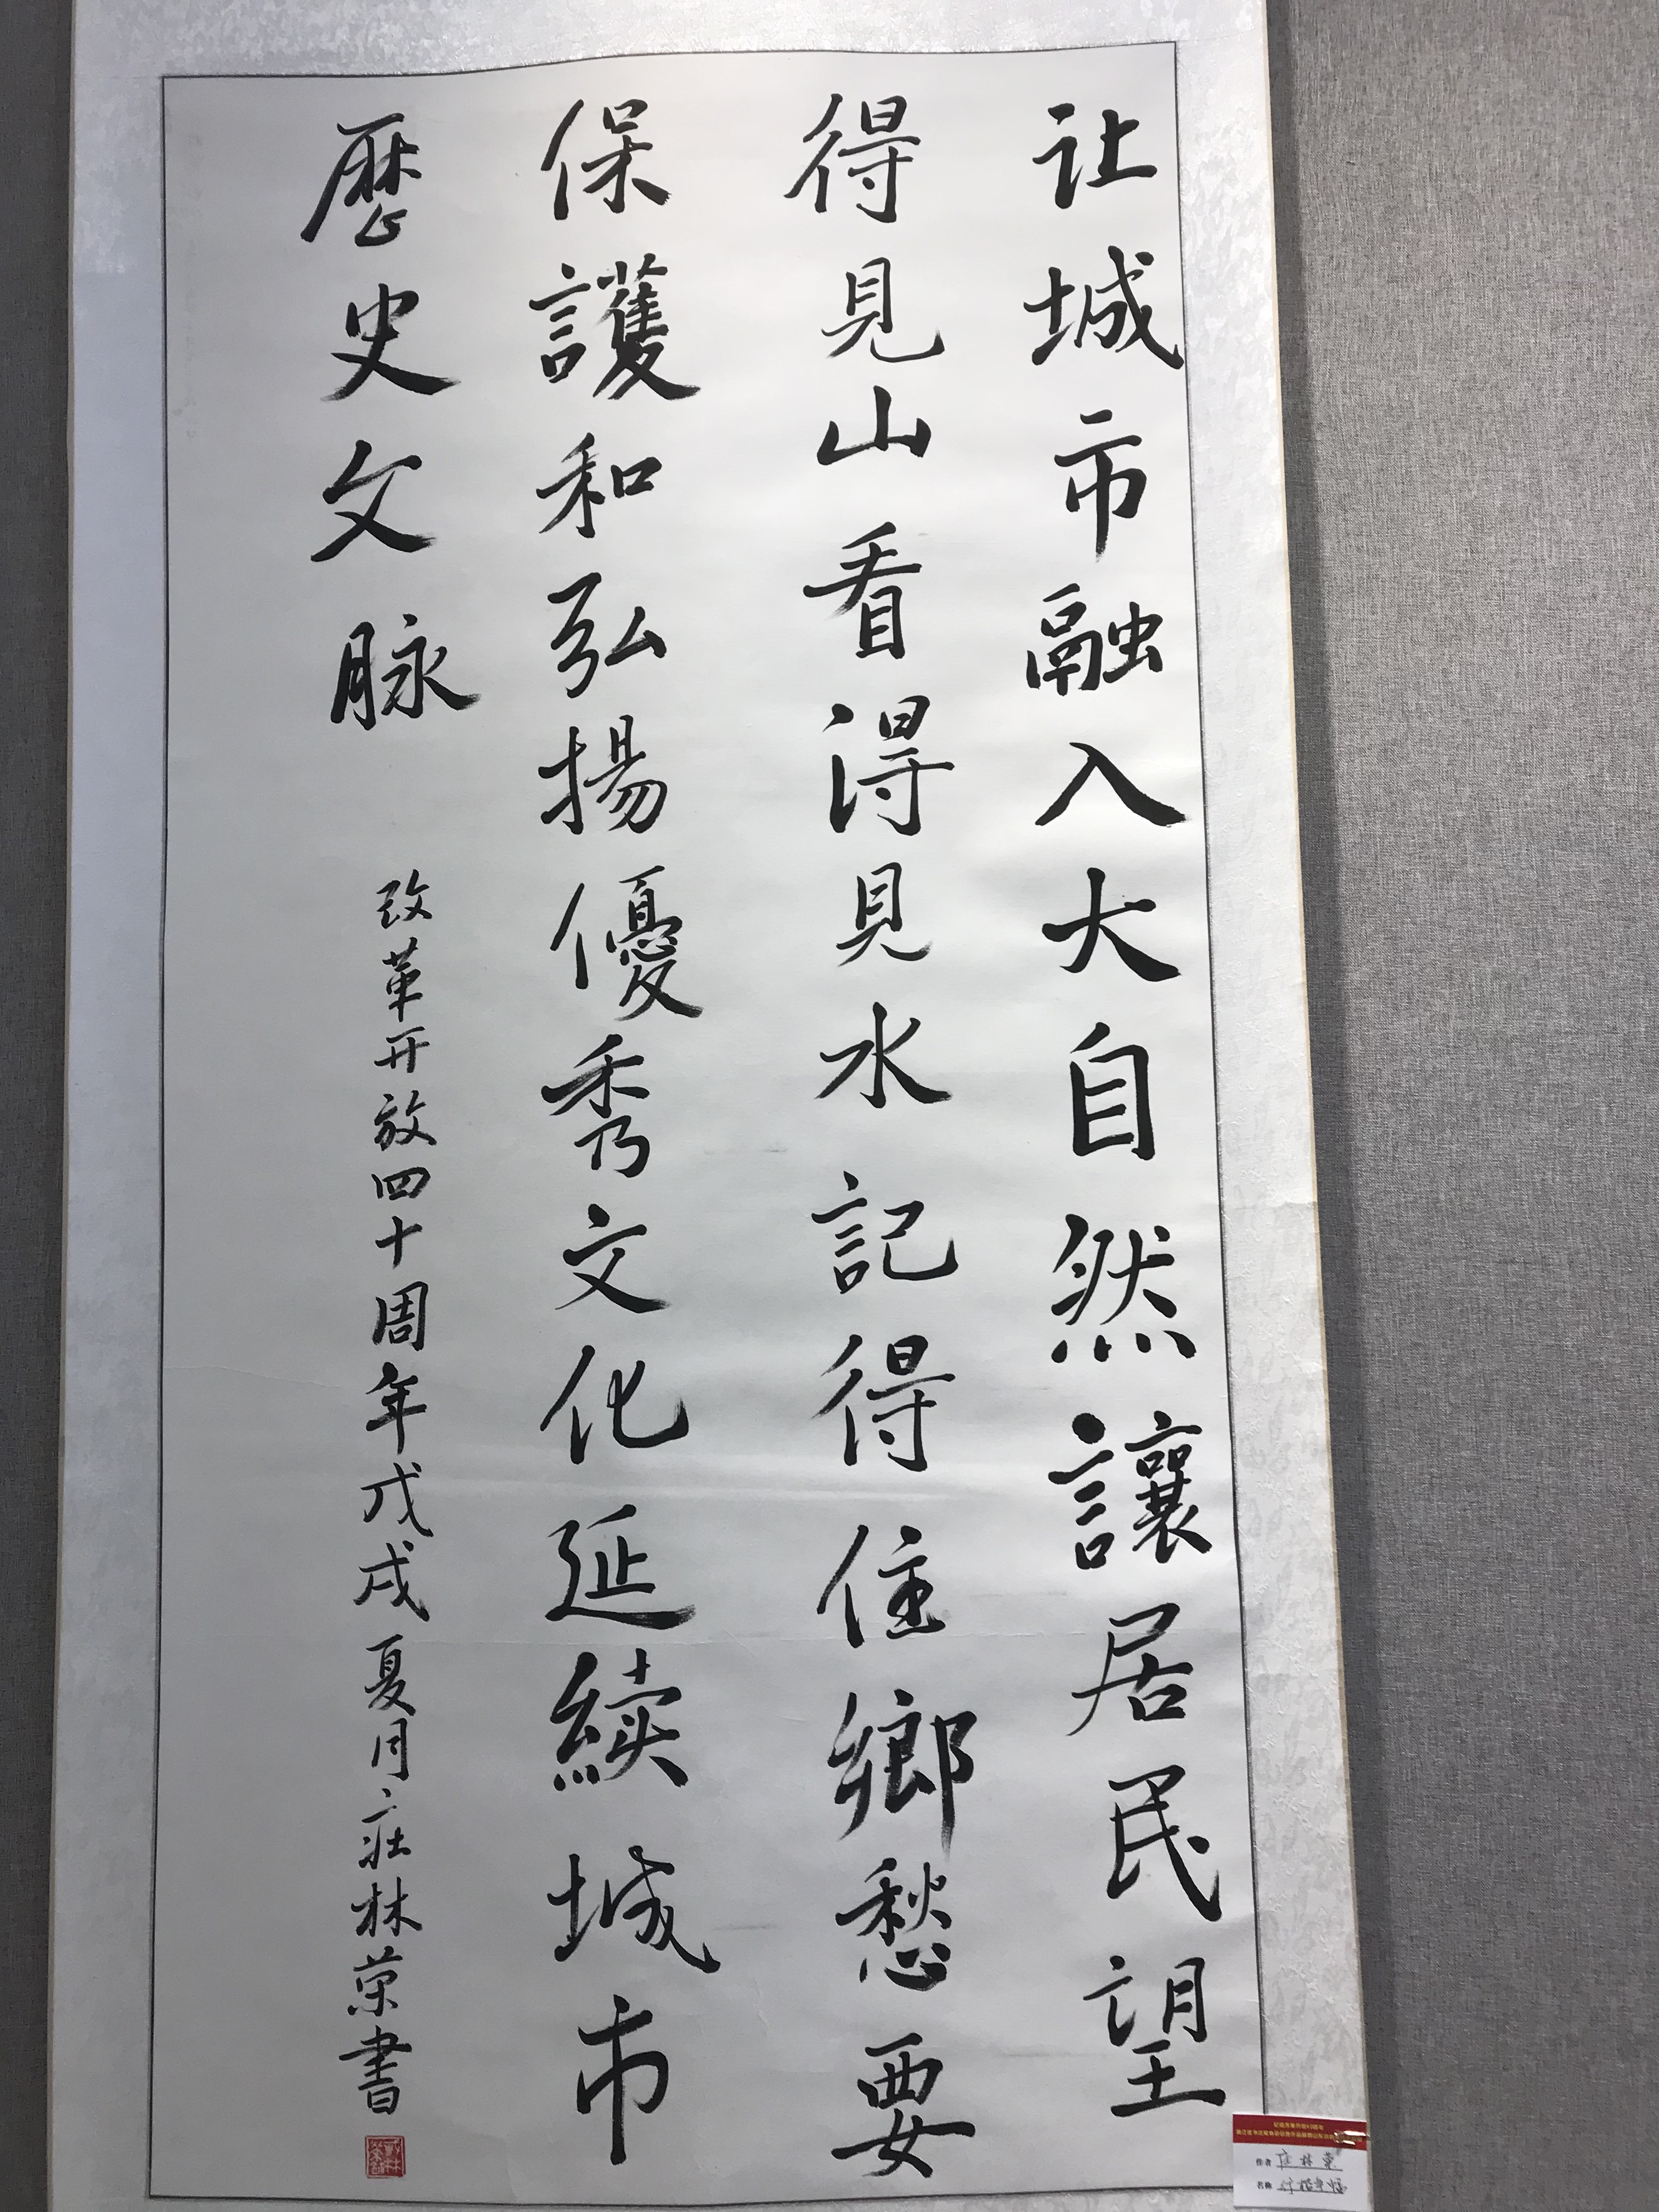 让城市融入大自然讓居民望
得見山看得見水記得住鄉愁要
保護和弘揚優秀文化延續城市
歷史文脉
改革开放四十周年戊戌夏月庄林荣書
作者 庄林荣
名称